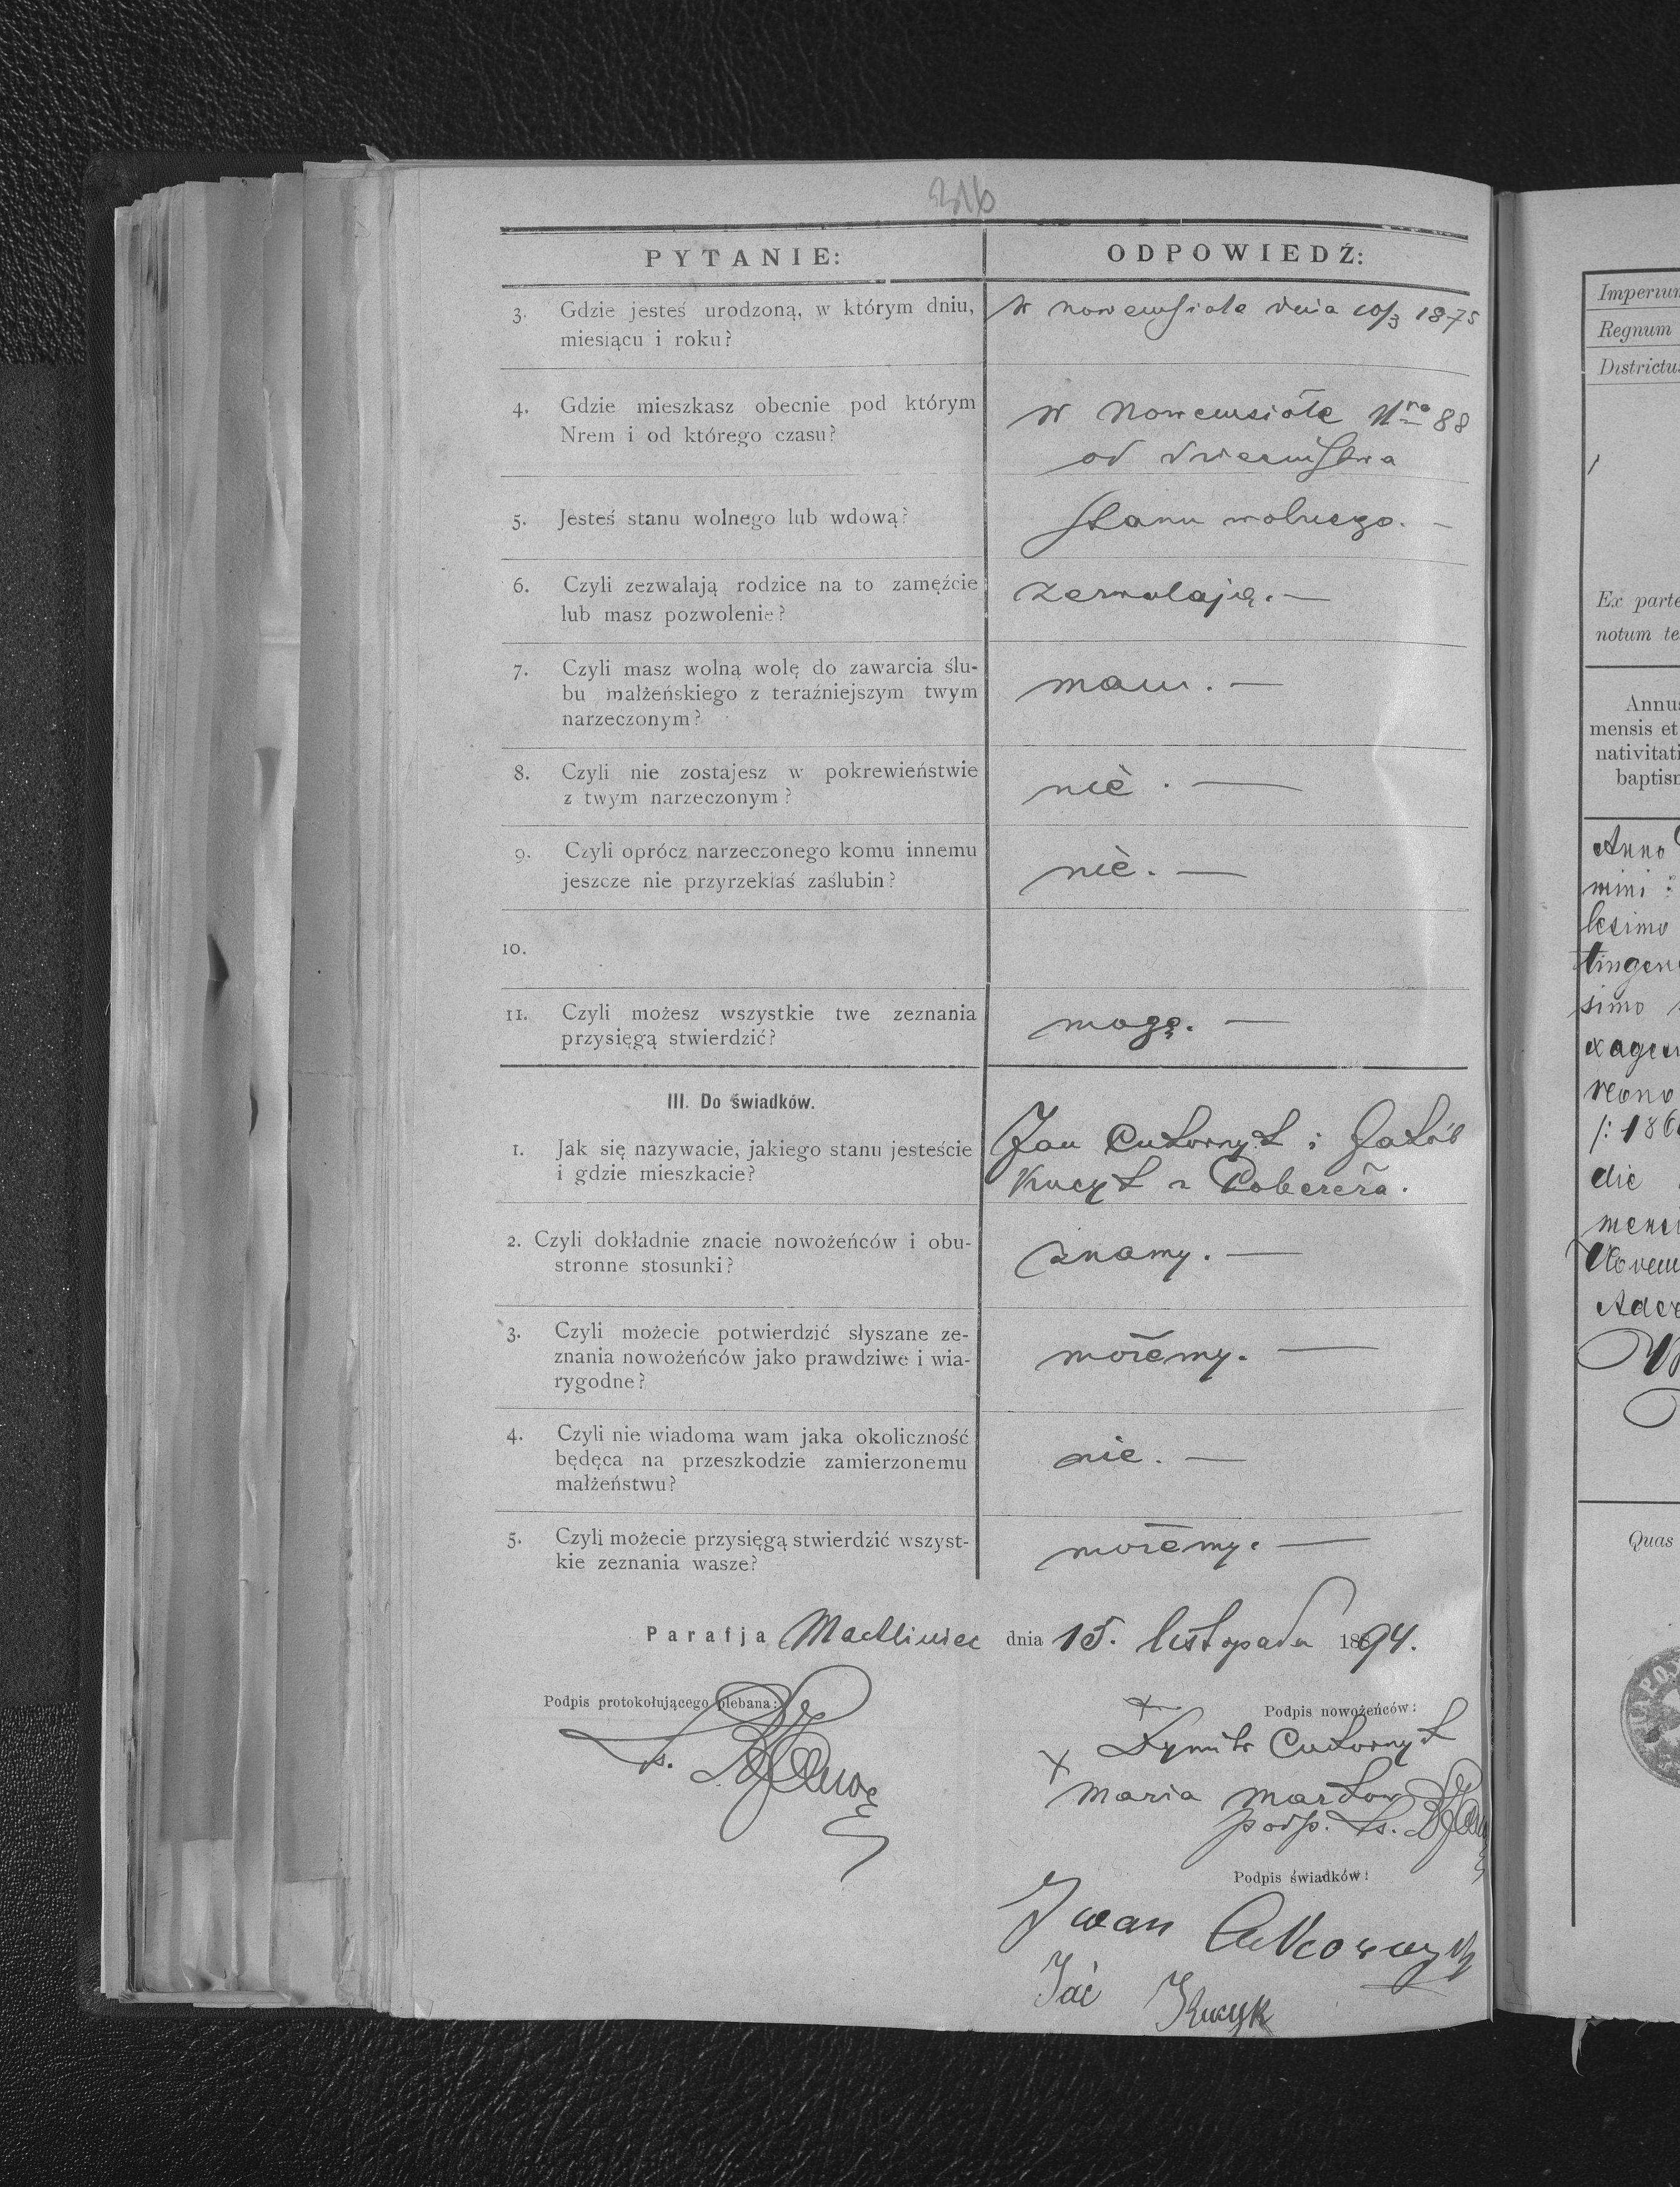 316
PYTANIE: ODPOWIEDŹ:
3. Gdzie jesteś urodzoną, w którym dniu,
miesiącu i roku?
w Nowemsiole dnia 10/3 1875
4. Gdzie mieszkasz obecnie pod którym
Nrem i od którego czasu?
w Nowemsiole Nro 88
od dzieciństwa
5. Jesteś stanu wolnego lub wdową?
stanu wolnego. —
6. Czyli zezwalają rodzice na to zamęźcie
lub masz pozwolenie?
zezwalają. —
7. Czyli masz wolną wolę do zawarcia ślu-
bu małżeńskiego z teraźniejszym twym
narzeczonym?
mam. —
8. Czyli nie zostajesz w pokrewieństwie
z twym narzeczonym?
nie. —
9. Czyli oprócz narzeczonego komu innemu
jeszcze nie przyrzekłaś zaślubin?
nie. —
10.
11. Czyli możesz wszystkie twe zeznania
przysięgą stwierdzić?
mogę. —
III. Do świadków.
1. Jak się nazywacie, jakiego stanu jesteście
i gdzie mieszkacie?
Jan Cukornyk i Jakób
Kucyk z
2. Czyli dokładnie znacie nowożeńców i obu-
stronne stosunki?
znamy. —
3. Czyli możecie potwierdzić słyszane ze-
znania nowożeńców jako prawdziwe i wia-
rygodne?
możemy. —
4. Czyli nie wiadoma wam jaka okoliczność
będęca na przeszkodzie zamierzonemu
małżeństwu?
nie. —
5. Czyli możecie przysięgą stwierdzić wszyst-
kie zeznania wasze?
możemy. —
Parafja Machliniec dnia 15. listopada 1894.
Podpis protokołującego plebana:
Podpis nowożeńców:
x Dymitr Cukornyk
x Maria
podp. ks.
Podpis świadków:
Iwan
Kucyk
Imperium
Regnum
Districtus
Ex parte
notum te
Annus
mensis et
nativitati
baptism
Anno
mini :
lesimo
tingen
simo
exagen
nono
/: 186
die
mens
Novem
Quas